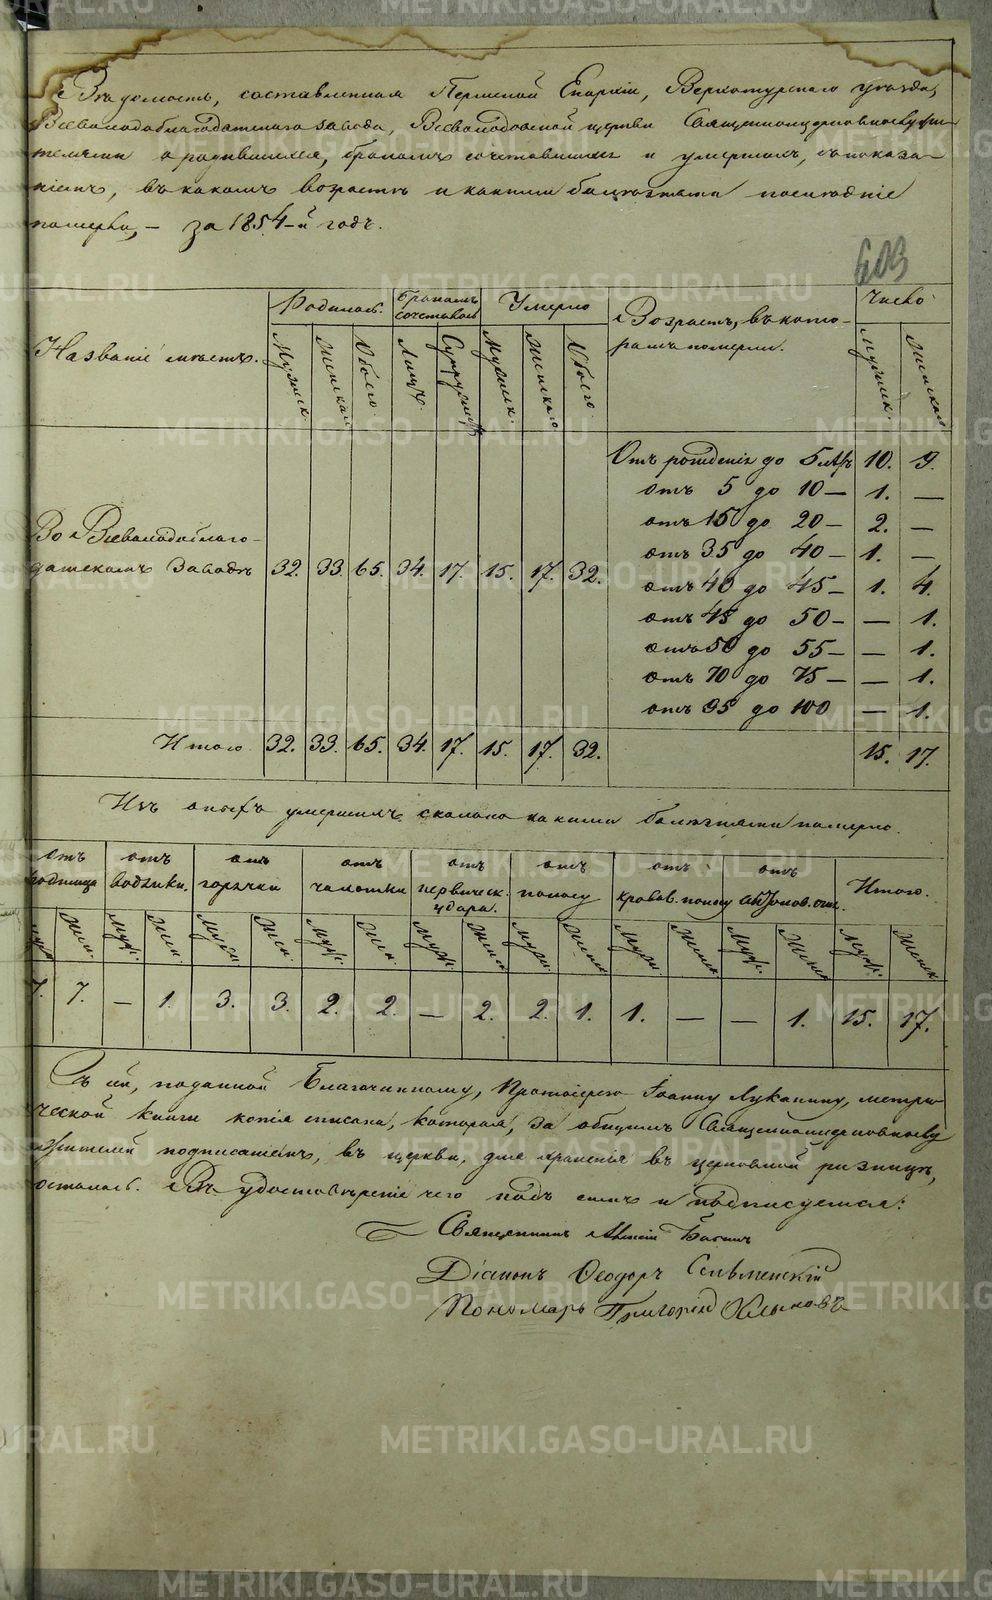 Вѣдомость, составленная Пермской Епархіи, Верхотурского уѣзда,
Всеволодоблагодатского завода, Всеволодовской церкви Священноцерковнослужи-
телями о родившихся, бракомъ сочетавшихся и умершихъ, съ показа-
ніемъ, въ какомъ возрастѣ и какими болѣзнями послѣдніе
померли, – за 1854-й годъ.
603
Названіе мѣстъ. Родилось. Бракомъ сочеталось Умерло Возрастъ, въ кото-
ромъ померли. Число
Мужск. Женскаго Обоего. Лицъ. Супружествъ Мужск. Женскаго Обоего. Мужск. Женскаго
Отъ рожденія до 5 лѣтъ 10. 9.
отъ 5 до 10 – 1. –
отъ 15 до 20 – 2. –
отъ 35 до 40 – 1. –
Во Всеволодоблаго-
датскомъ Заводѣ 32. 33. 65. 34. 17. 15. 17. 32.
отъ 40 до 45 – 1. 4.
отъ 45 до 50 – – 1.
отъ 50 до 55 – – 1.
отъ 70 до 75 – – 1.
отъ 95 до 100 – 1.
Итого 32. 33. 65. 34. 17. 15. 17. 32. 15. 17.
Изъ оныхъ умершихъ сколько какими болѣзнями померло.
отъ родимца отъ водянки. отъ горячки отъ чахотки отъ нервическ. удара. отъ поносу отъ кровав. поносу отъ антонов. огня. Итого.
Муж. Жен. Муж. Жен. Муж. Жен. Муж. Жен. Муж. Жен. Муж. Женск. Муж. Женск. Муж. Женск. Муж. Женск.
7. 7. – 1. 3. 3. 2. 2. – 2. 2. 1. 1. – – 1. 15. 17.
Съ сей, поданной Благочинному, Протоіерею Іоанну Луканину, метри-
ческой книги копія списана, которая, за общимъ Священноцерковнослу-
жителей подписаніемъ, въ церкви, для храненія въ церковной ризницѣ,
осталась. Въ удостовѣреніе чего подъ симъ и подписуемся:
Священникъ Алексій
Діаконъ Ѳеодоръ Селвменскій
Пономарь Григорій